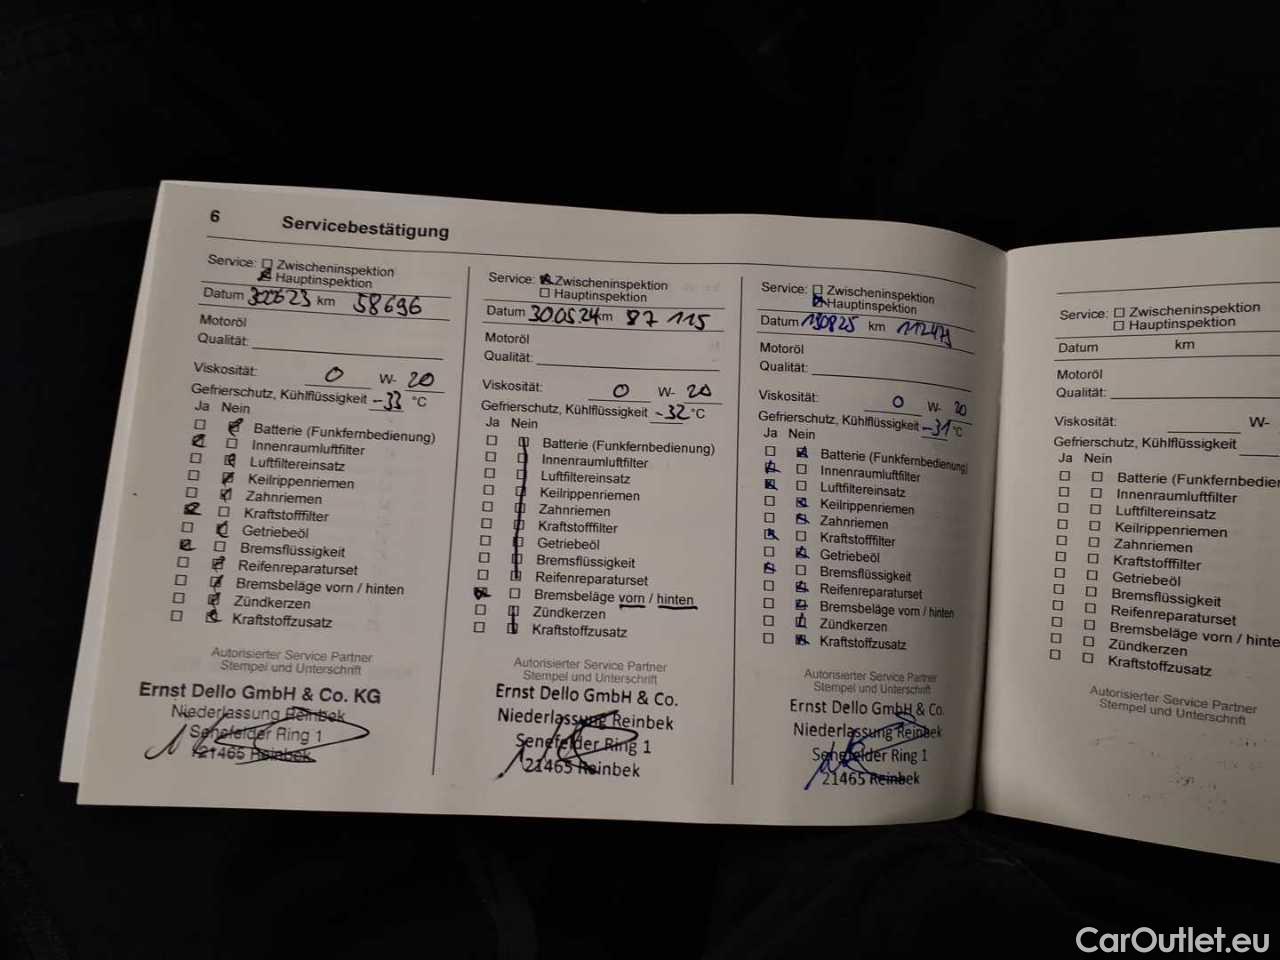 6 Servicebestätigung
Service: Zwischeninspektion
Hauptinspektion
Datum km 58696
Motoröl
Qualität:
Viskosität: 0 W- 20
Gefrierschutz, Kühlflüssigkeit -33 °C
Ja Nein
Batterie (Funkfernbedienung)
Innenraumluftfilter
Luftfiltereinsatz
Keilrippenriemen
Zahnriemen
Kraftstofffilter
Getriebeöl
Bremsflüssigkeit
Reifenreparaturset
Bremsbeläge vorn / hinten
Zündkerzen
Kraftstoffzusatz
Autorisierter Service Partner
Stempel und Unterschrift
Ernst Dello GmbH & Co. KG
Niederlassung Reinbek
Senefelder Ring 1
21465 Reinbek
Service: Zwischeninspektion
Hauptinspektion
Datum 30.05.24 km 87 115
Motoröl
Qualität:
Viskosität: 0 W- 20
Gefrierschutz, Kühlflüssigkeit -32 °C
Ja Nein
Batterie (Funkfernbedienung)
Innenraumluftfilter
Luftfiltereinsatz
Keilrippenriemen
Zahnriemen
Kraftstofffilter
Getriebeöl
Bremsflüssigkeit
Reifenreparaturset
Bremsbeläge vorn / hinten
Zündkerzen
Kraftstoffzusatz
Autorisierter Service Partner
Stempel und Unterschrift
Ernst Dello GmbH & Co.
Niederlassung Reinbek
Senefelder Ring 1
21465 Reinbek
Service: Zwischeninspektion
Hauptinspektion
Datum 130825 km 112479
Motoröl
Qualität:
Viskosität: 0 W- 20
Gefrierschutz, Kühlflüssigkeit -31 °C
Ja Nein
Batterie (Funkfernbedienung)
Innenraumluftfilter
Luftfiltereinsatz
Keilrippenriemen
Zahnriemen
Kraftstofffilter
Getriebeöl
Bremsflüssigkeit
Reifenreparaturset
Bremsbeläge vorn / hinten
Zündkerzen
Kraftstoffzusatz
Autorisierter Service Partner
Stempel und Unterschrift
Ernst Dello GmbH & Co.
Niederlassung Reinbek
Senefelder Ring 1
21465 Reinbek
Service: Zwischeninspektion
Hauptinspektion
Datum km
Motoröl
Qualität:
Viskosität: W-
Gefrierschutz, Kühlflüssigkeit
Ja Nein
Batterie (Funkfernbedien
Innenraumluftfilter
Luftfiltereinsatz
Keilrippenriemen
Zahnriemen
Kraftstofffilter
Getriebeöl
Bremsflüssigkeit
Reifenreparaturset
Bremsbeläge vorn / hinte
Zündkerzen
Kraftstoffzusatz
Autorisierter Service Partner
Stempel und Unterschrift
CarOutlet.eu